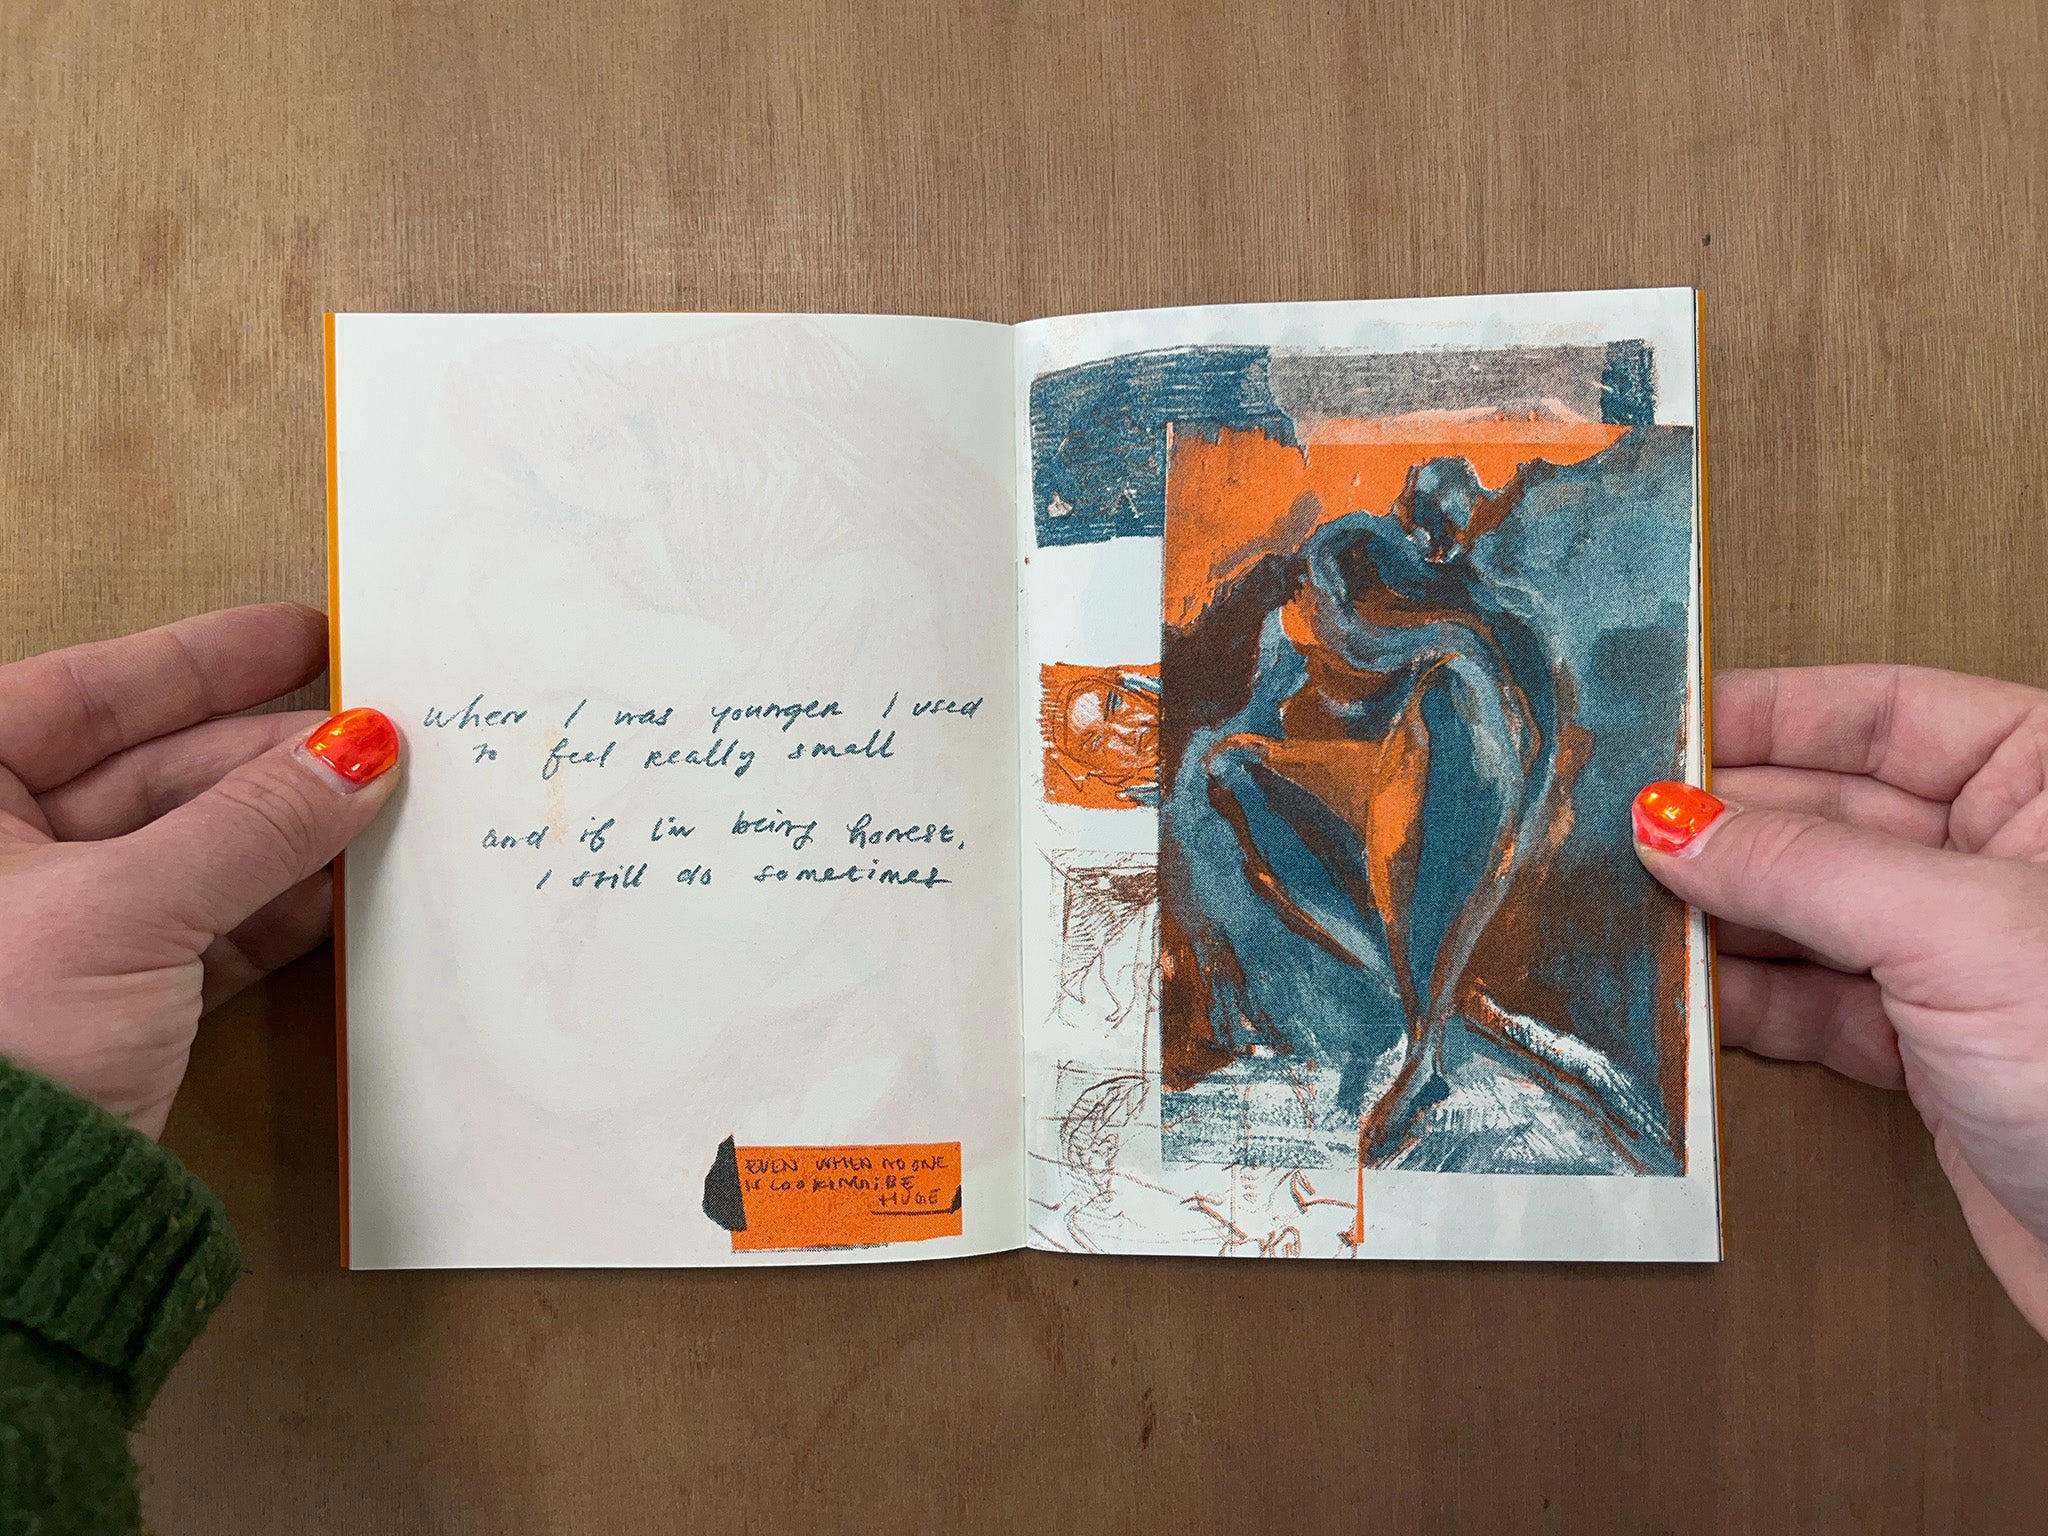 When I was younger I used
to feel really small
and if I'm being honest,
I still do sometimes
EVEN WHEN NO ONE
IS LOOKING BE
HUGE